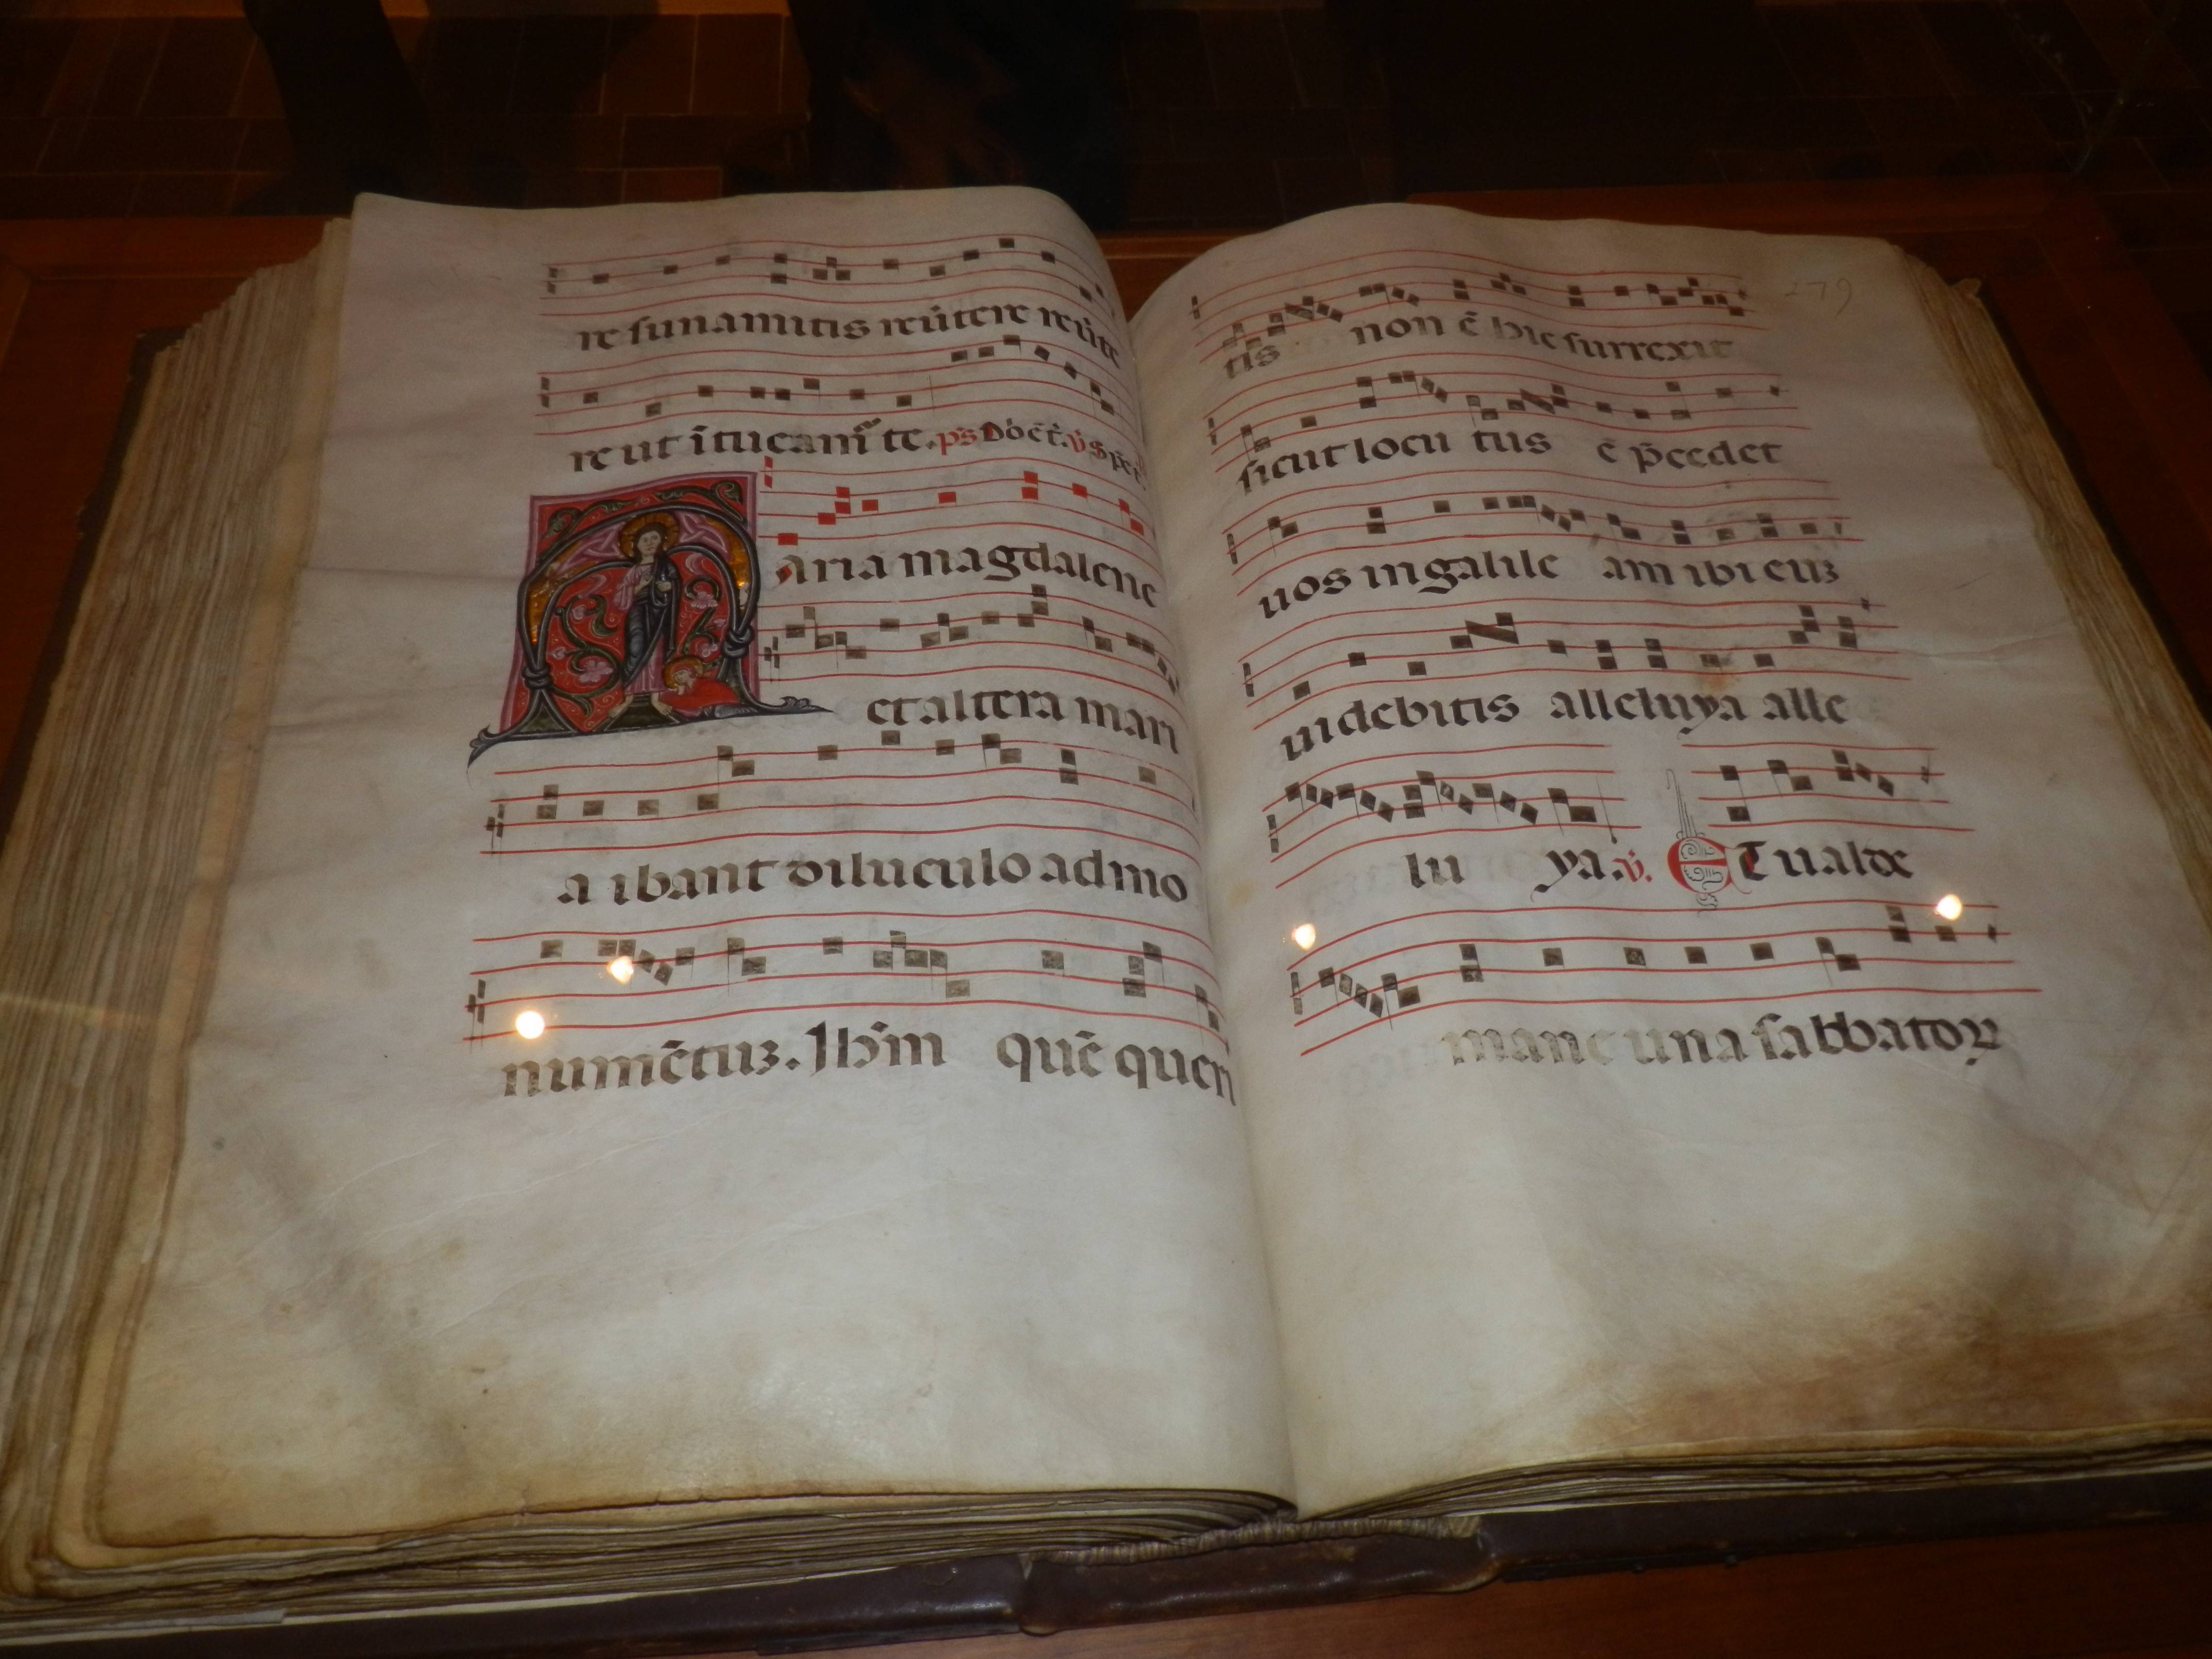 re sunamitis reũtere reũte
re ut ĩtueam̃ te. ps Dõ ẽt. v̇ Sp̃c
Maria magdalene
et altera mari
a ibant diluculo ad mo
numẽtuʒ. Ihm̃ quẽ queri
279
tis non ẽ hic surrexit
sicut locutus ẽ p̃cedet
uos in galileam ibi euʒ
uidebitis alleluya alle
luya. v̇. Et ualde
mane una sabbatoꝝ